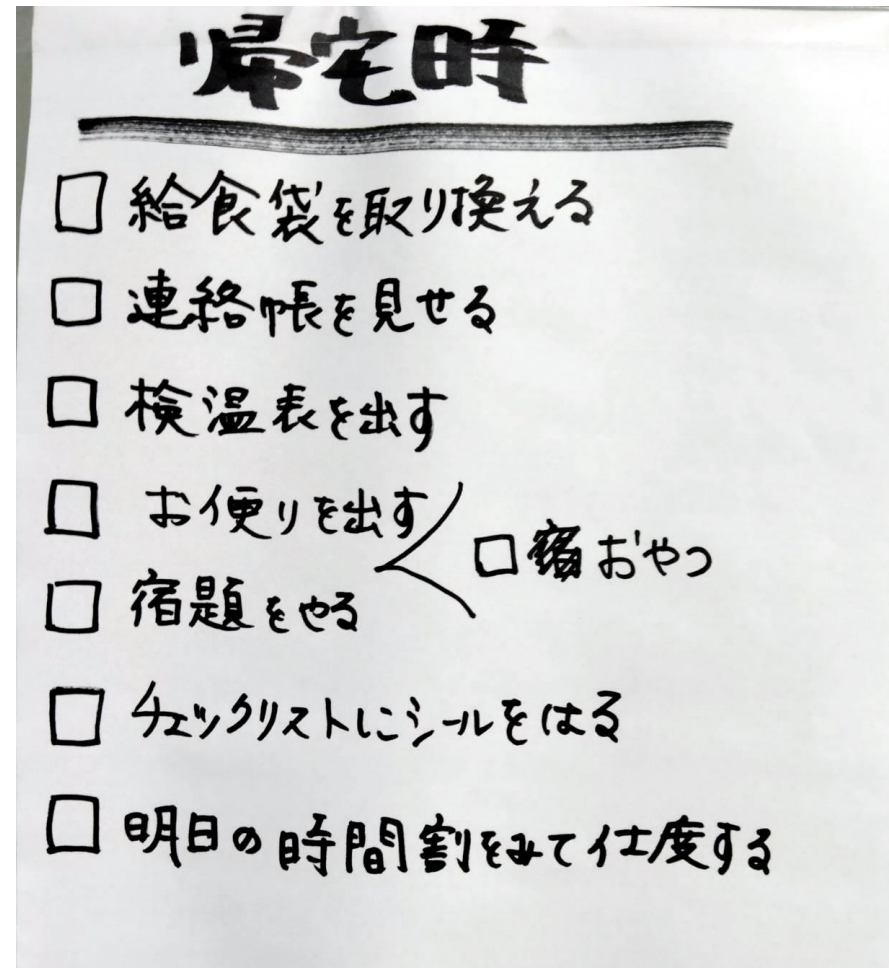 帰宅時
□ 給食袋を取り換える
□ 連絡帳を見せる
□ 検温表を出す
□ お便りを出す
□ おやつ
□ 宿題をやる
□ チェックリストにシールをはる
□ 明日の時間割をみて仕度する